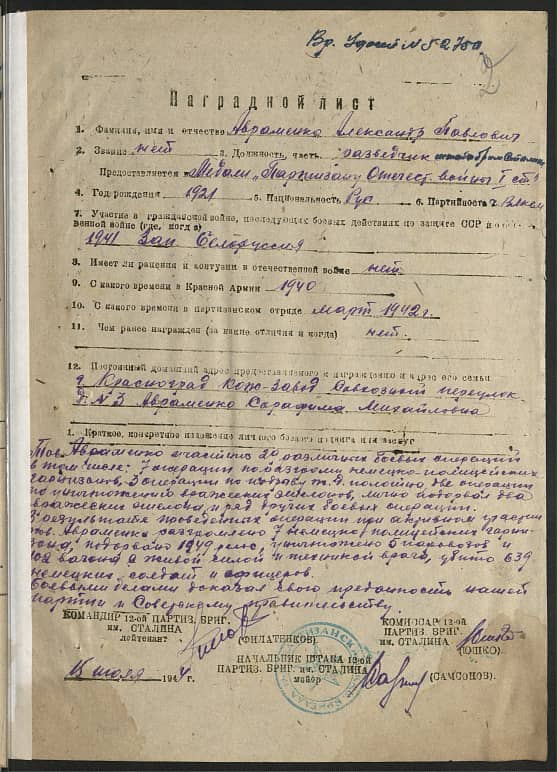 Вр. Удост N 52750
2
Наградной лист
1. Фамилия, имя и отчество Авраменко Александр Павлович
2. Звание нет 3. Должность, часть разведчик
Представляется к Медали „Партизану Отечест. войны" I ст.
4. Год рождения 1921 5. Национальность Рус 6. Партийность Чл. ВЛКСМ
7. Участие в гражданской войне, последующих боевых действиях по защите ССР и
венной войне (где, когда)
1941 Зап Белоруссия
8. Имеет ли ранения и контузии в отечественной войне нет
9. С какого времени в Красной Армии 1940
10. С какого времени в партизанском отряде март 1942 г.
11. Чем ранее награжден (за какие отличия и когда) нет
12. Постоянный домашний адрес представляемого к награждению и адрес его семьи
г Красноград кож-завод Совхозный переулок
д. N 3 Авраменко Серафима Михайловна
1. Краткое, конкретное изложение личного боевого подвига или заслуг
Тов. Авраменко участник 20 различных боевых операций
в том числе: 7 операции по разгрому немецко-полицейских
гарнизонов, 3 операции по подрыву ж.д. полотна, две операции
по уничтожению вражеских эшелонов, лично подорвал два
вражеских эшелона и ряд других боевых операций.
В результате проведенных операций при активном участии
тов. Авраменко разгромлено 7 немецко полицейских гарни-
зона, подорвано 1949 рельс, уничтожено 5 паровозов и
вагона с живой силой и техникой врага, убито 639
немецких солдат и офицеров.
Боевыми делами доказал свою преданность нашей
партии и Советскому правительству.
КОМАНДИР 12-ой ПАРТИЗ. БРИГ.
им. СТАЛИНА
лейтенант (ФИЛАТЕНКОВ)
КОМИССАР 12-ой
ПАРТИЗ. БРИГ.
им. СТАЛИНА
(ЮШКО)
НАЧАЛЬНИК ШТАБА 12-ой
ПАРТИЗ. БРИГ. им. СТАЛИНА
майор (САМСОНОВ)
15 июля 1944